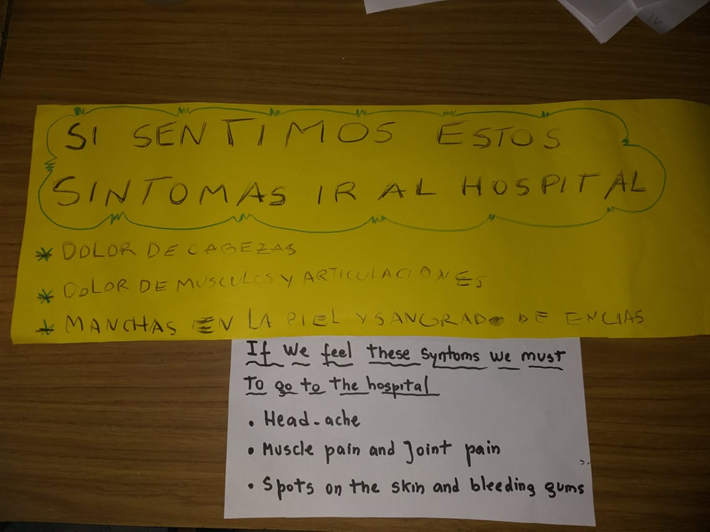 SI SENTIMOS ESTOS
SINTOMAS IR AL HOSPITAL
* DOLOR DE CABEZAS
* DOLOR DE MUSCULOS Y ARTICULACIONES
* MANCHAS EN LA PIEL Y SANGRADO DE ENCIAS
If we feel these syntoms we must
to go to the hospital
• Head-ache
• Muscle pain and Joint pain
• Spots on the skin and bleeding gums